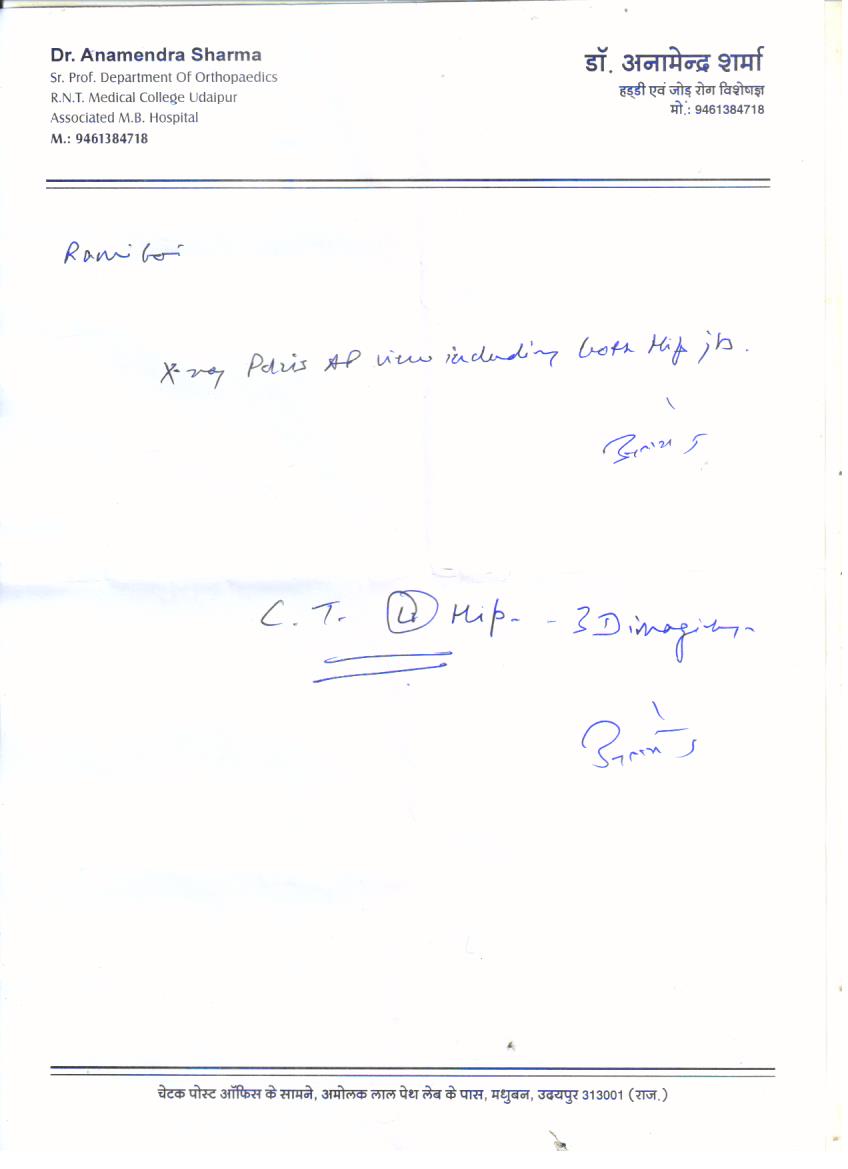 Dr. Anamendra Sharma
Sr. Prof. Department Of Orthopaedics
R.N.T. Medical College Udaipur
Associated M.B. Hospital
M.: 9461384718
डॉ. अनामेन्द्र शर्मा
हड्डी एवं जोड़ रोग विशेषज्ञ
मो.: 9461384718
X-ray Pelvis AP view including both Hip jts.
C.T. Lt Hip - 3D imaging
चेटक पोस्ट ऑफिस के सामने, अमोलक लाल पेथ लेब के पास, मधुबन, उदयपुर 313001 (राज.)